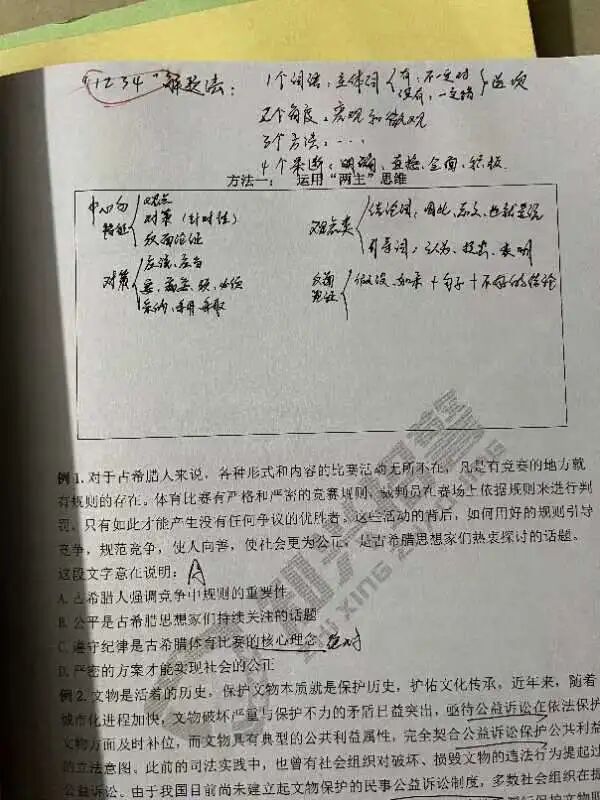 “1234”解题法： 1个词语，主体词 有，不一定对 没有，一定错 选项
2个角度，宏观和微观
3个方法，……
4个果断，明确、直接、全面、积极
方法一： 运用“两主”思维
中心句特征 观点
对策（针对性）
反面论证
观点类 结论词：因此、总之、也就是说
引导词：认为、投票、表明
对策 应该、应当
要、需要、须、必须
采纳、采用、采取
反面论证 假设、如果＋句子＋不好的结论
例 1. 对于古希腊人来说，各种形式和内容的比赛活动无所不在，凡是有竞赛的地方就
有规则的存在。体育比赛有严格和严密的竞赛规则，裁判员在赛场上依据规则来进行判
罚，只有如此才能产生没有任何争议的优胜者。这些活动的背后，如何用好的规则引导
竞争，规范竞争，使人向善，使社会更为公正，是古希腊思想家们热衷探讨的话题。
这段文字意在说明： A
A. 古希腊人强调竞争中规则的重要性
B. 公平是古希腊思想家们持续关注的话题
C. 遵守纪律是古希腊体育比赛的核心理念 绝对
D. 严密的方案才能实现社会的公正
例 2. 文物是活着的历史，保护文物本质就是保护历史，护佑文化传承，近年来，随着
城市化进程加快，文物破坏严重与保护不力的矛盾日益突出，亟待公益诉讼在依法保护
文物方面及时补位，而文物具有典型的公共利益属性，完全契合公益诉讼保护公共利益
的立法意图。此前的司法实践中，也曾有社会组织对破坏、损毁文物的违法行为提起过
公益诉讼。由于我国目前尚未建立起文物保护的民事公益诉讼制度，多数社会组织在提
ZHI XING ZHI JING